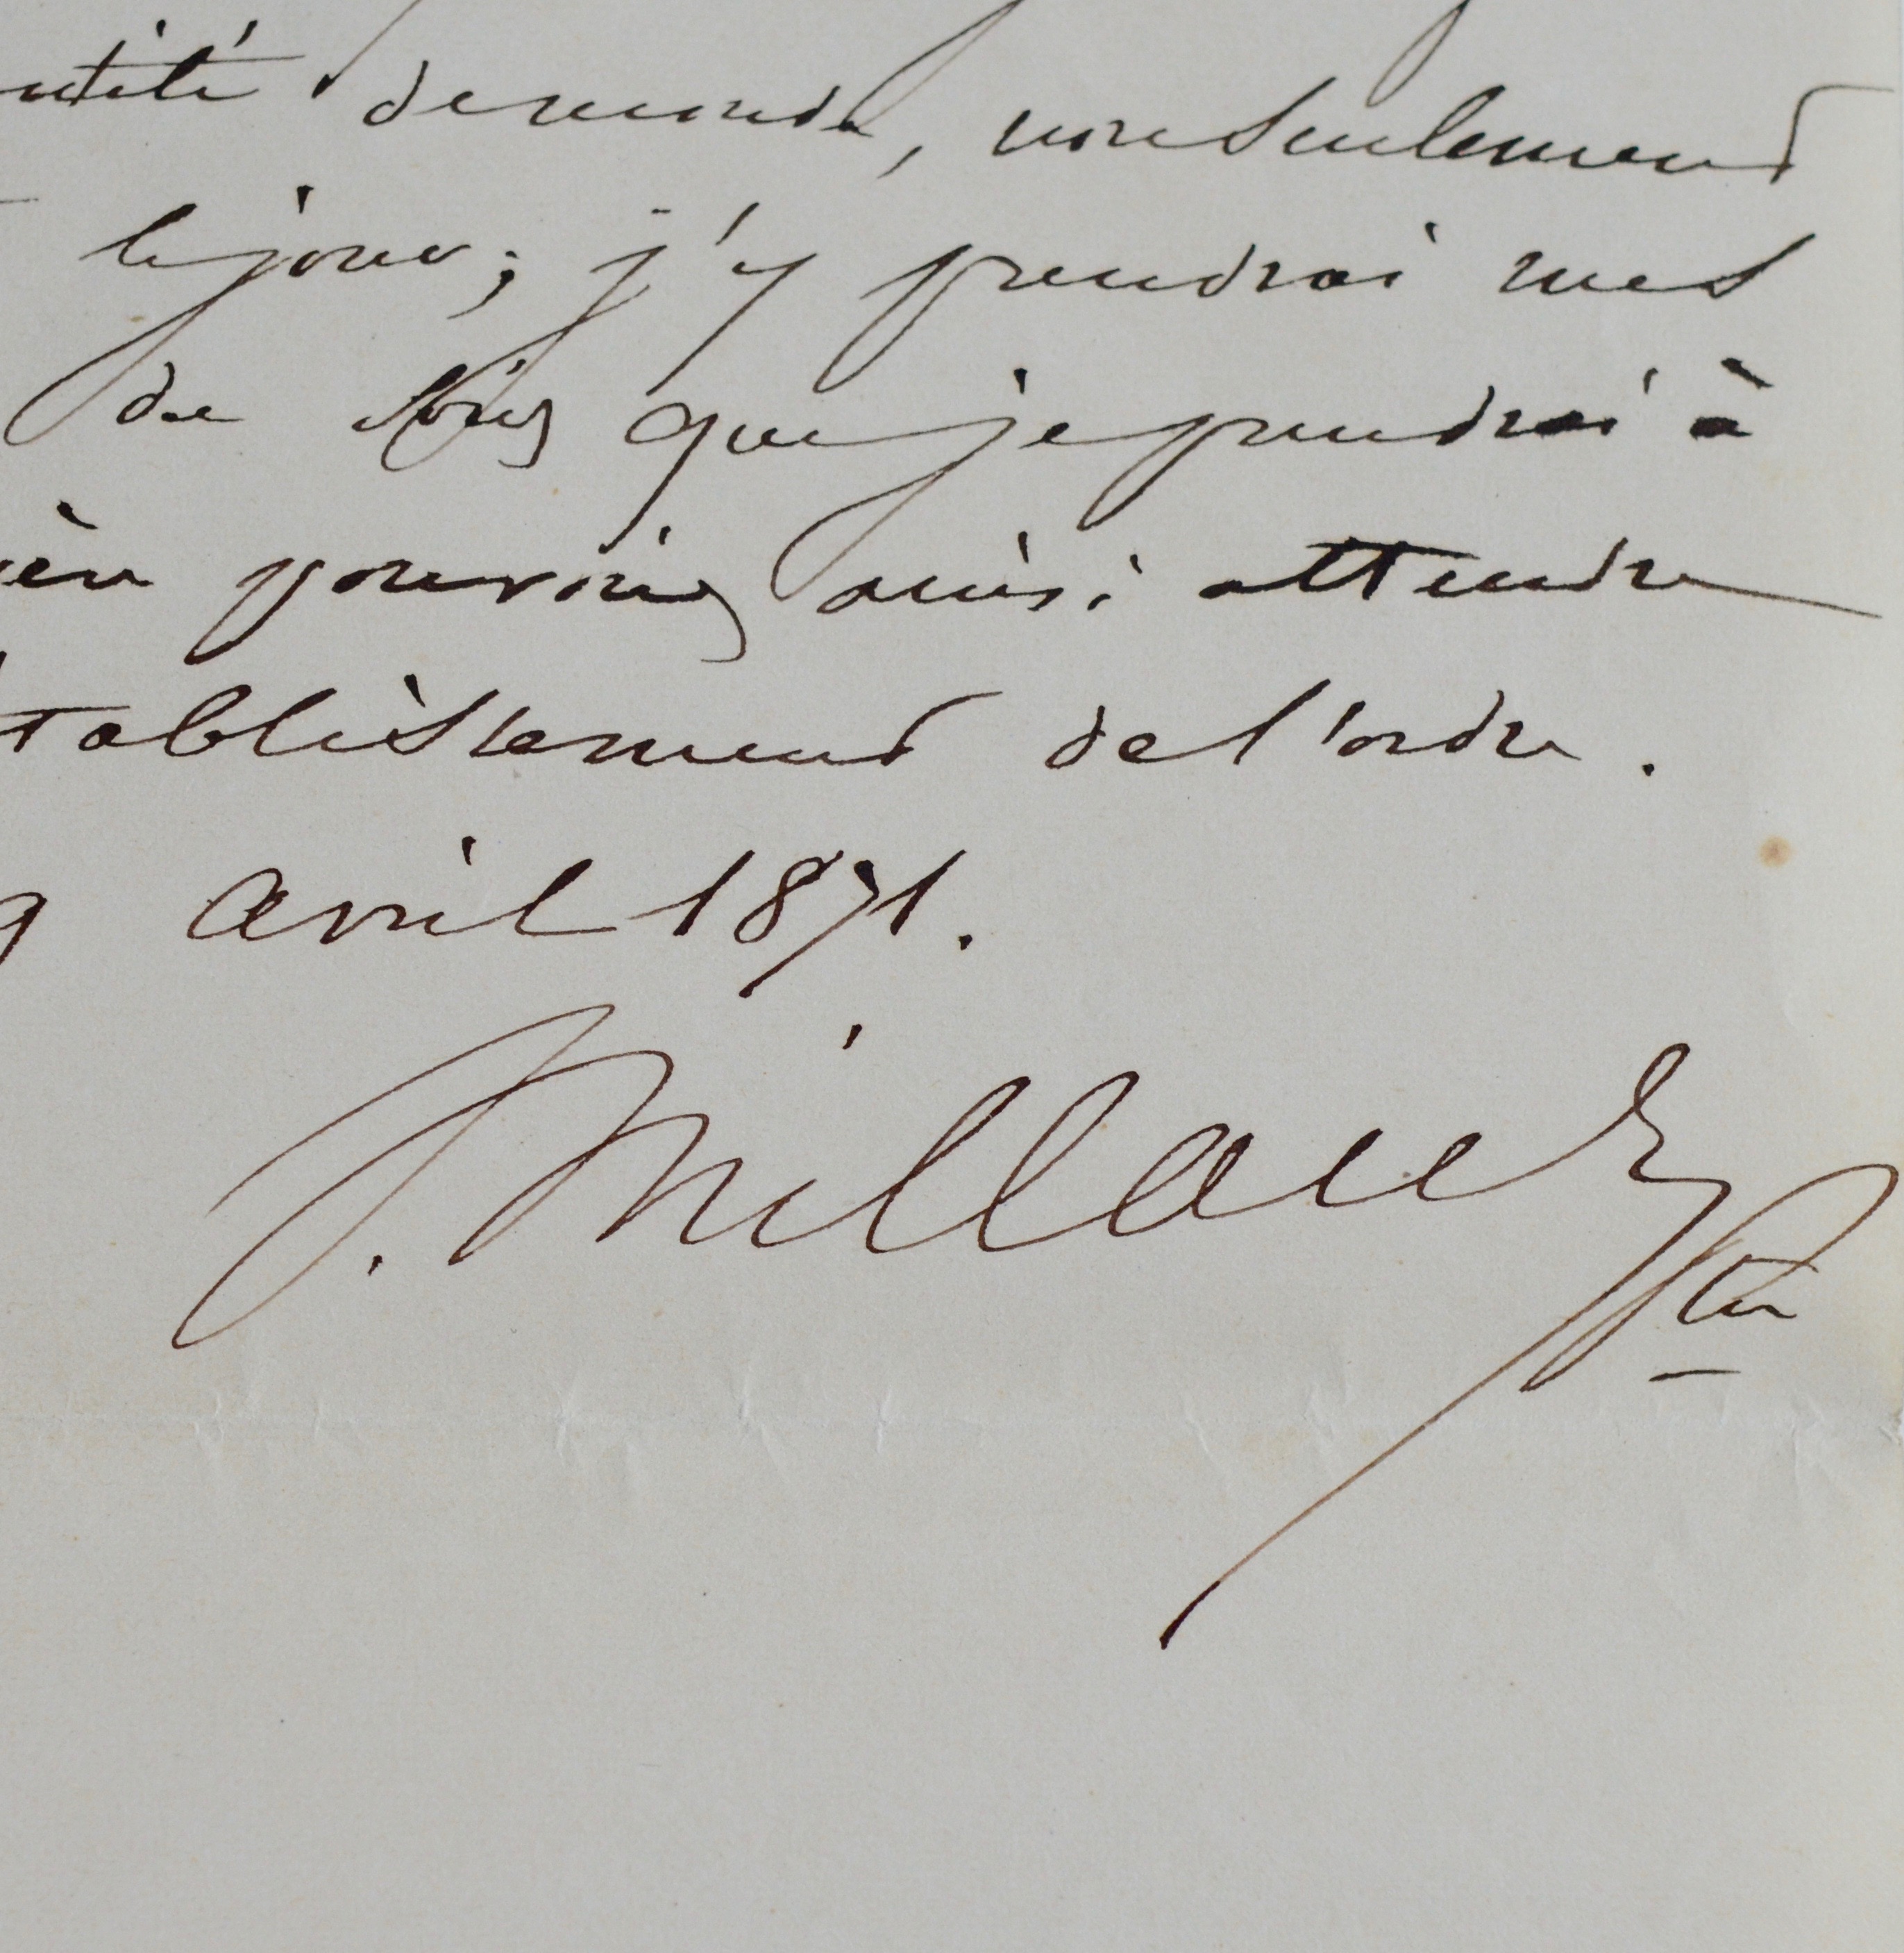 demande, non seulement
le jour; j'y prendrai mes
du soir, que je prendrai à
pouvoir, ainsi attendre
tablissement de l'ordre.
9 avril 1871.
J. Millaud